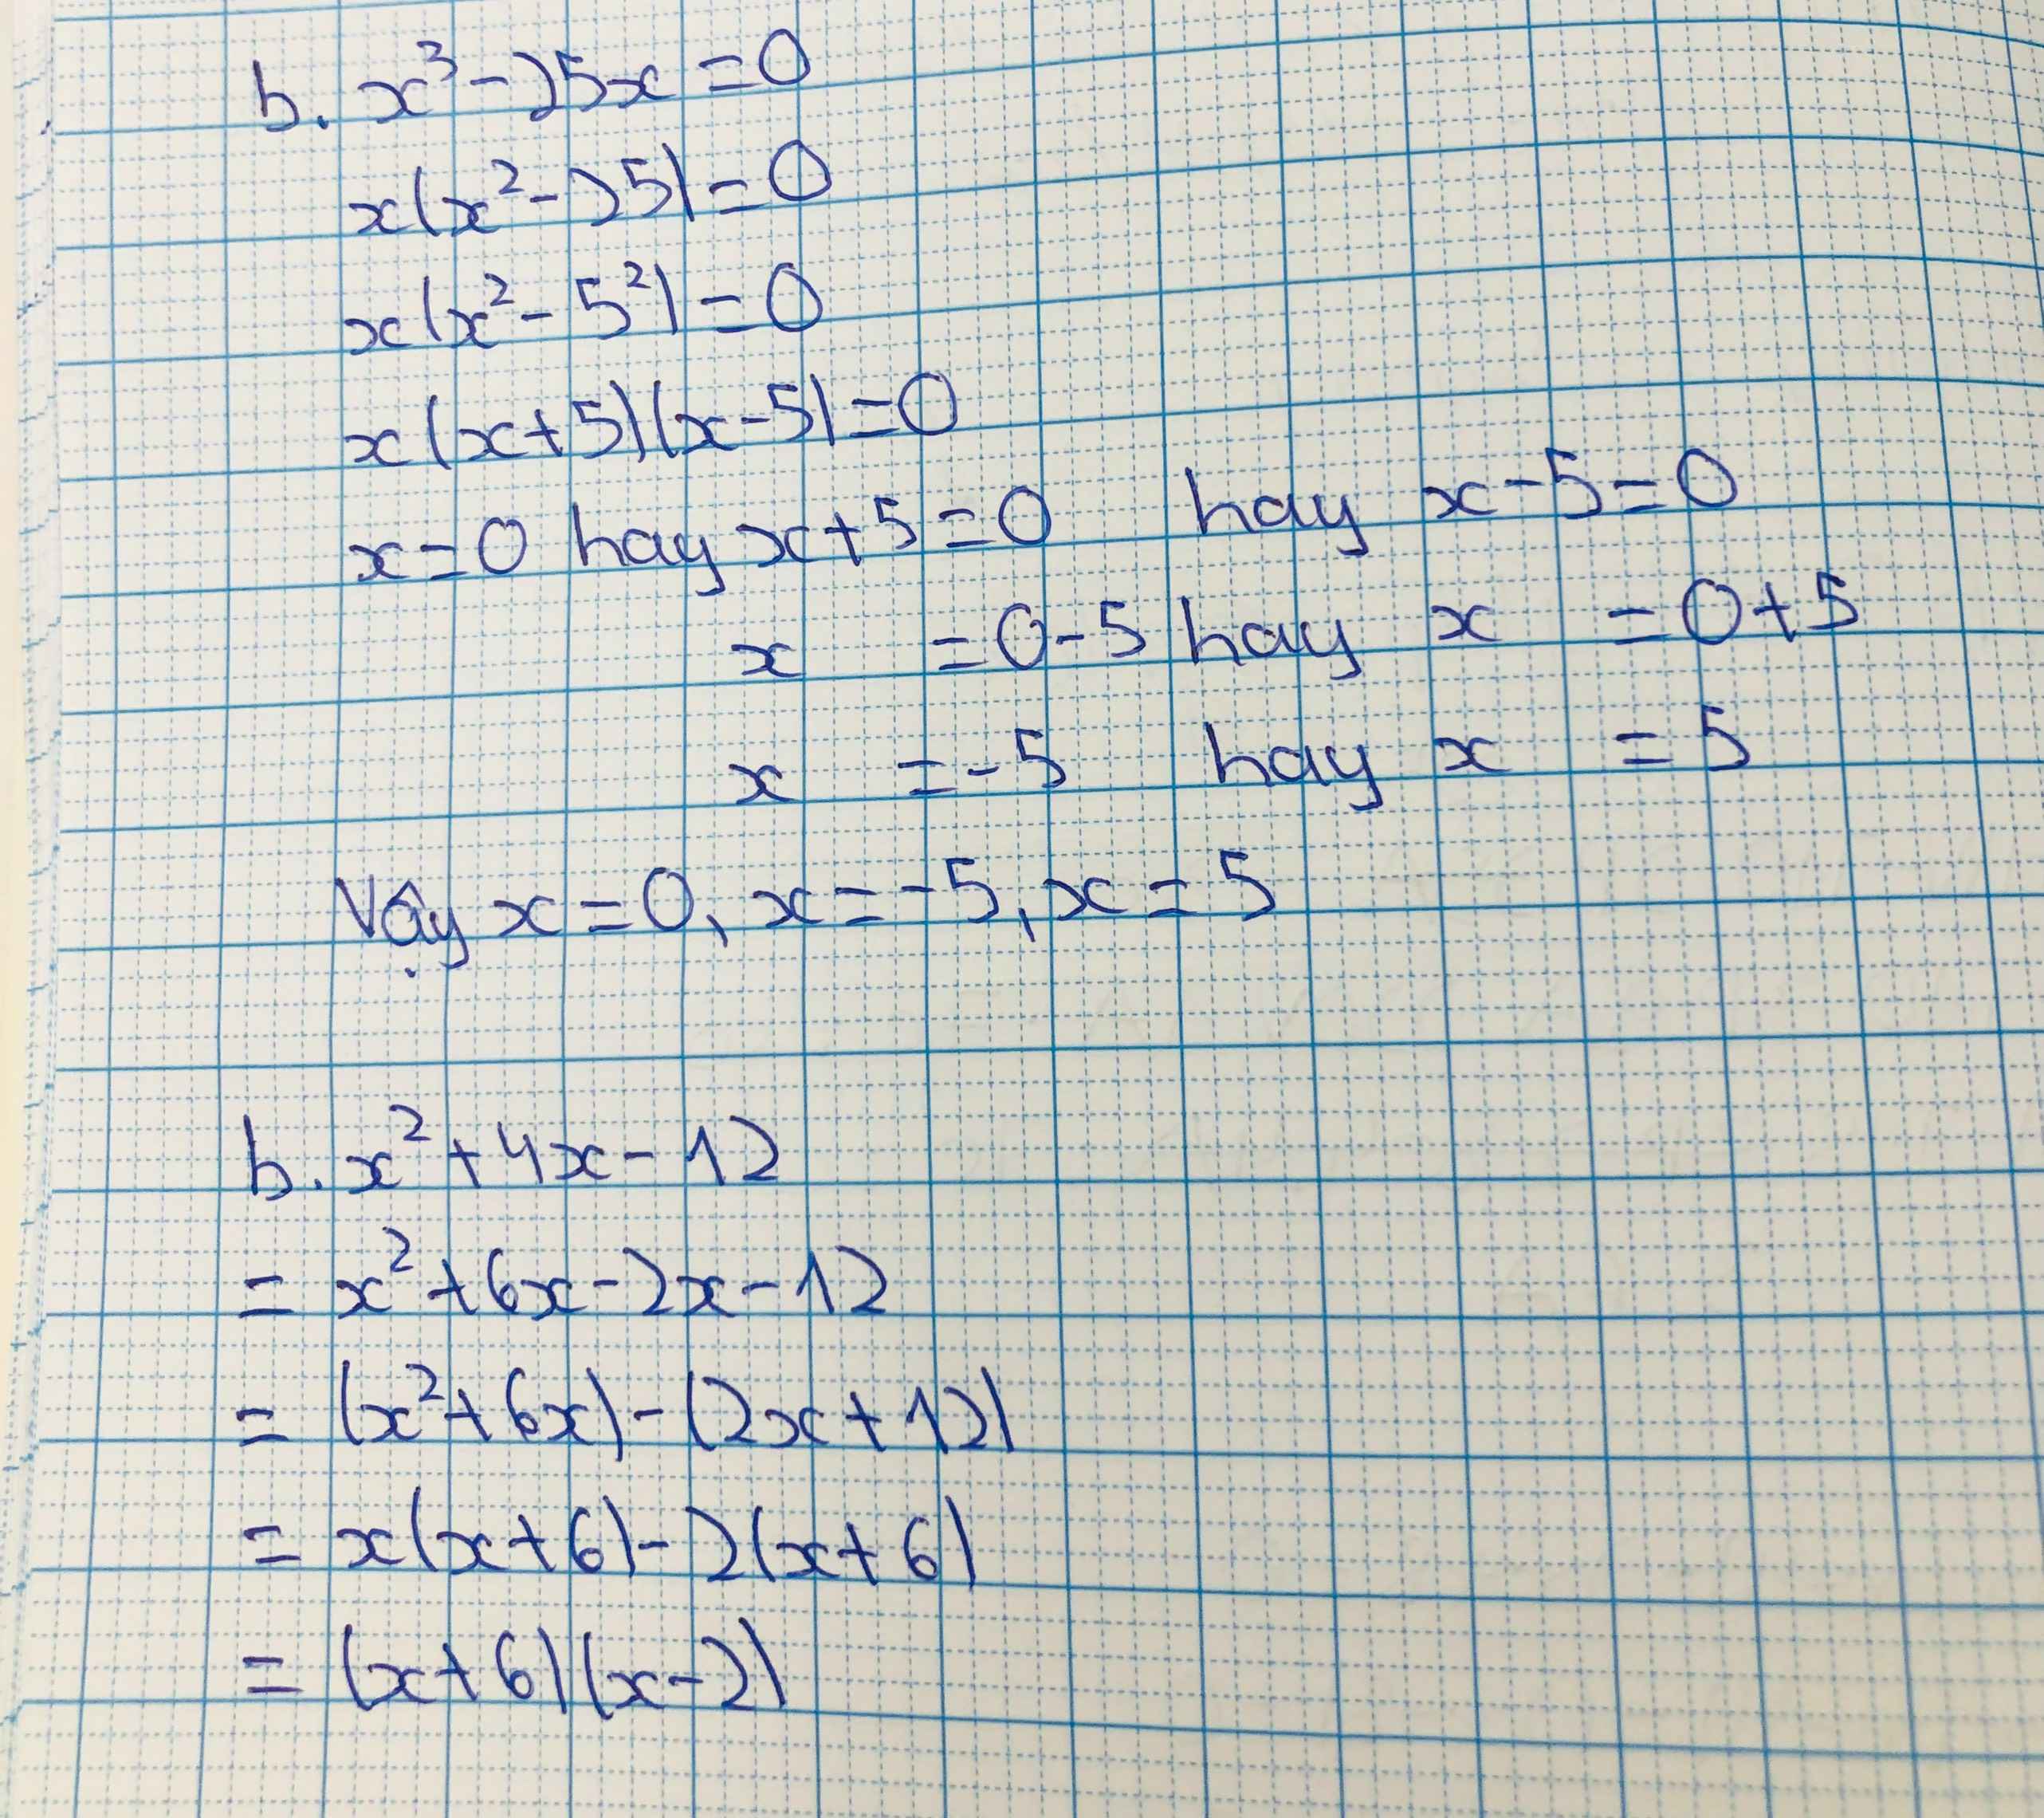 b. x³ - 25x = 0
x(x² - 25) = 0
x(x² - 5²) = 0
x(x+5)(x-5) = 0
x = 0 hay x+5 = 0 hay x-5 = 0
x = 0-5 hay x = 0+5
x = -5 hay x = 5
Vậy x = 0, x = -5, x = 5
b. x² + 4x - 12
= x² + 6x - 2x - 12
= (x² + 6x) - (2x + 12)
= x(x+6) - 2(x+6)
= (x+6)(x-2)